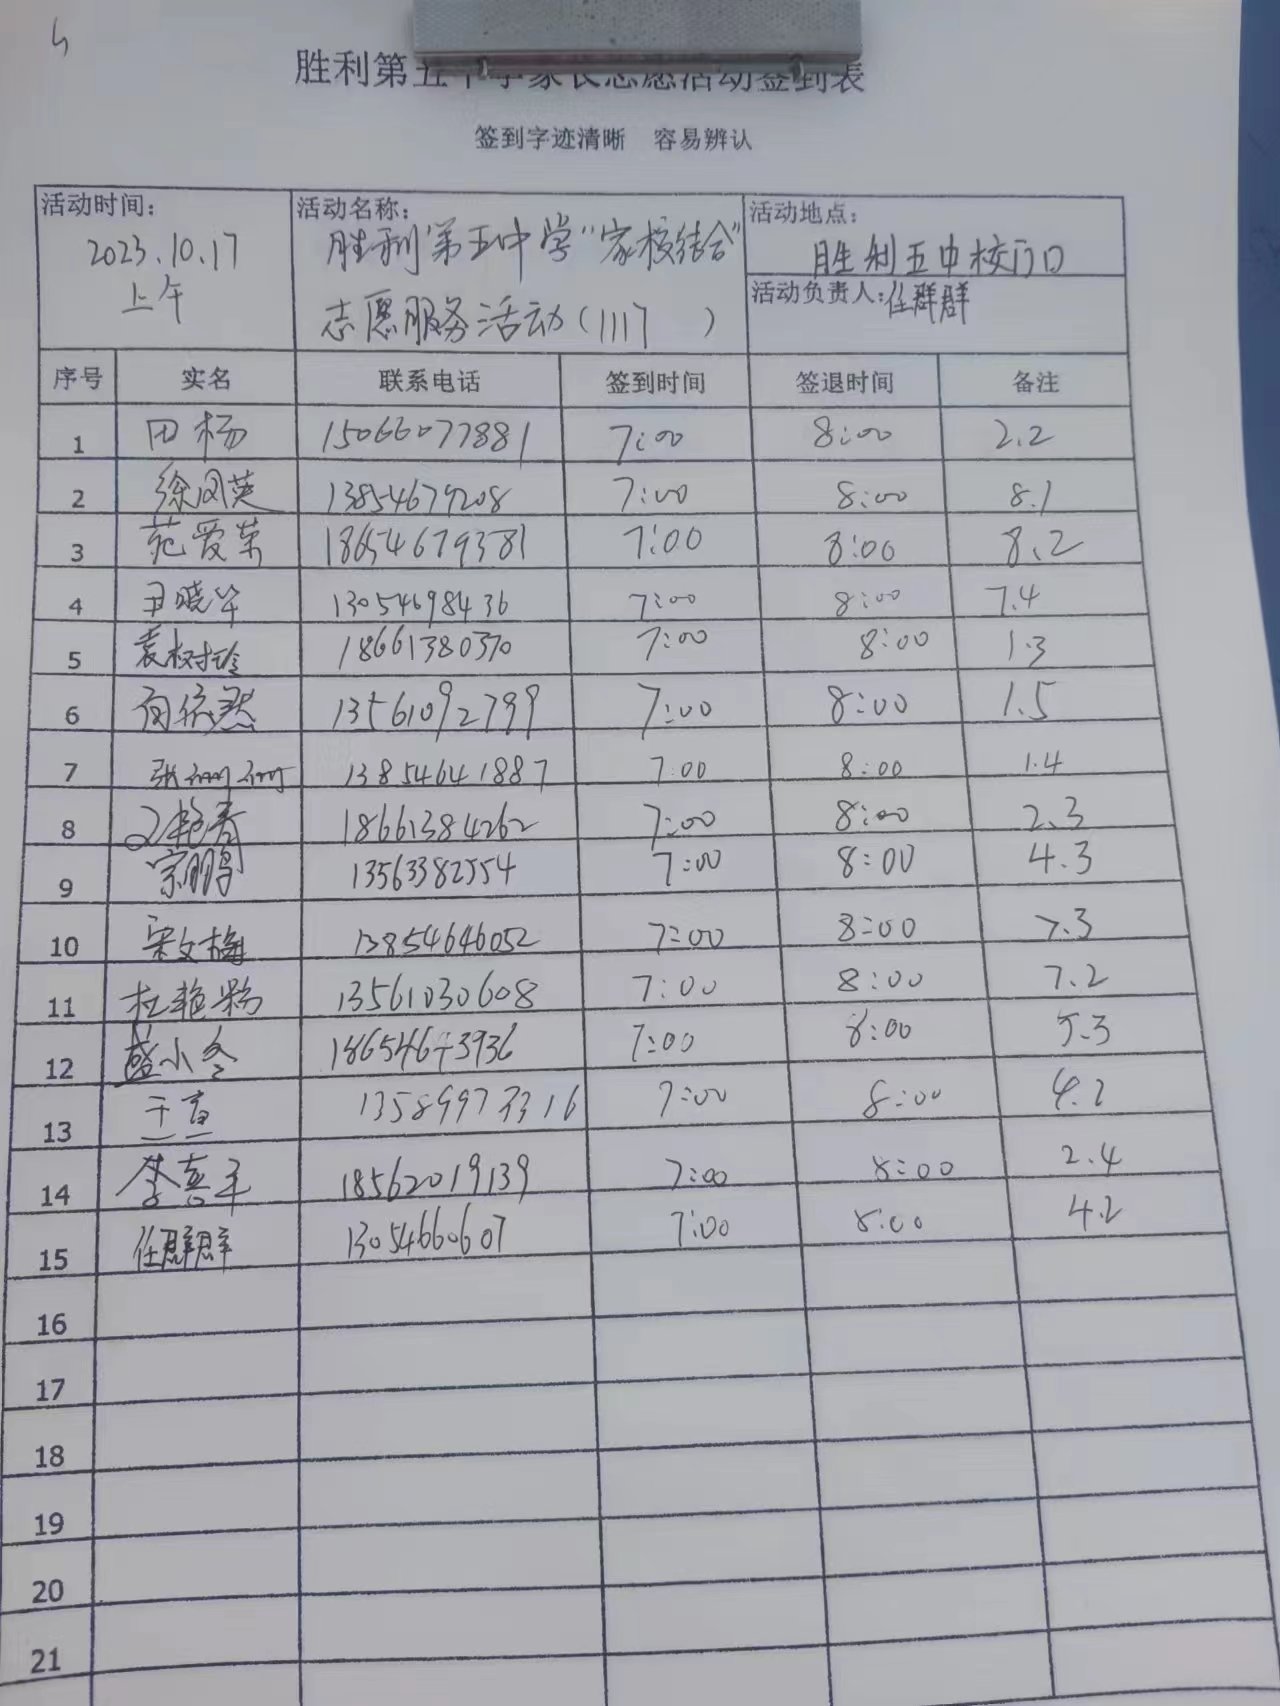 胜利第五中学家长志愿活动签到表
签到字迹清晰 容易辨认
活动时间: 2023.10.17 上午
活动名称: 胜利第五中学“家校结合”
志愿服务活动(1117 )
活动地点: 胜利五中校门口
活动负责人: 任群群
序号 实名 联系电话 签到时间 签退时间 备注
1 田杨 15066077881 7:00 8:00 2.2
2 徐凤英 13854679208 7:00 8:00 8.1
3 苑爱荣 18654679381 7:00 8:00 8.2
4 尹晓华 13054698436 7:00 8:00 7.4
5 袁树玲 18661380370 7:00 8:00 1.3
6 13561092799 7:00 8:00 1.5
7 张珊珊 13854641887 7:00 8:00 1.4
8 18661384262 7:00 8:00 2.3
9 宗鹏 13563382554 7:00 8:00 4.3
10 宋文梅 13854646052 7:00 8:00 7.3
11 杜艳粉 13561030608 7:00 8:00 7.2
12 盛小冬 7:00 8:00 5.3
13 13589973316 7:00 8:00 4.2
14 18562019139 7:00 8:00 2.4
15 任群群 13054660607 7:00 8:00 4.2
16
17
18
19
20
21